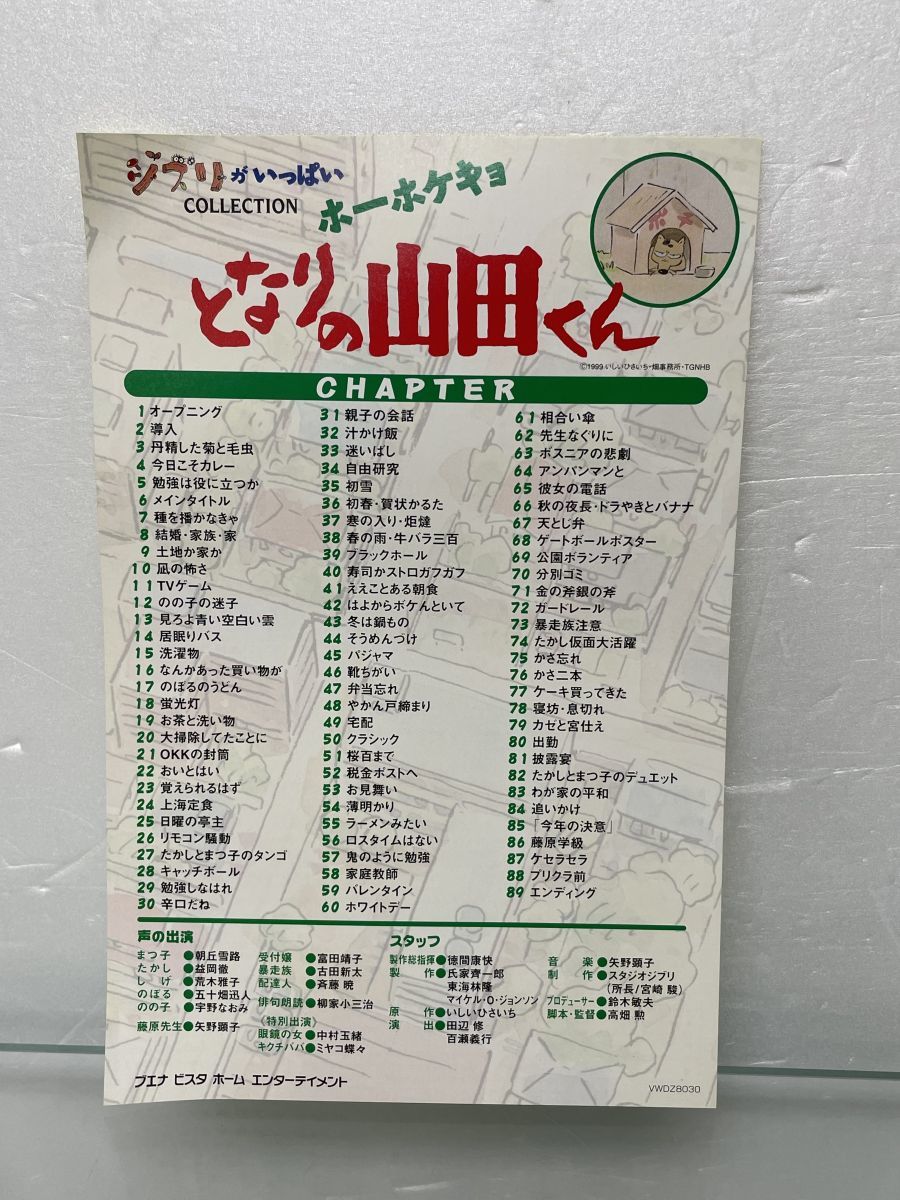 ジブリがいっぱい
COLLECTION
ホーホケキョ
となりの山田くん
ポチ
©1999 いしいひさいち・畑事務所・TGNHB
CHAPTER
1 オープニング
2 導入
3 丹精した菊と毛虫
4 今日こそカレー
5 勉強は役に立つか
6 メインタイトル
7 種を播かなきゃ
8 結婚・家族・家
9 土地か家か
10 凪の怖さ
11 TVゲーム
12 のの子の迷子
13 見ろよ青い空白い雲
14 居眠りバス
15 洗濯物
16 なんかあった買い物が
17 のぼるのうどん
18 蛍光灯
19 お茶と洗い物
20 大掃除してたことに
21 OKKの封筒
22 おいとはい
23 覚えられるはず
24 上海定食
25 日曜の亭主
26 リモコン騒動
27 たかしとまつ子のタンゴ
28 キャッチボール
29 勉強しなはれ
30 辛口だね
31 親子の会話
32 汁かけ飯
33 迷いばし
34 自由研究
35 初雪
36 初春・賀状かるた
37 寒の入り・炬燵
38 春の雨・牛バラ三百
39 ブラックホール
40 寿司かストロガフガフ
41 ええことある朝食
42 はよからボケんといて
43 冬は鍋もの
44 そうめんづけ
45 パジャマ
46 靴ちがい
47 弁当忘れ
48 やかん戸締まり
49 宅配
50 クラシック
51 桜百まで
52 税金ポストへ
53 お見舞い
54 薄明かり
55 ラーメンみたい
56 ロスタイムはない
57 鬼のように勉強
58 家庭教師
59 バレンタイン
60 ホワイトデー
61 相合い傘
62 先生なぐりに
63 ボスニアの悲劇
64 アンパンマンと
65 彼女の電話
66 秋の夜長・ドラやきとバナナ
67 天とじ弁
68 ゲートボールポスター
69 公園ボランティア
70 分別ゴミ
71 金の斧銀の斧
72 ガードレール
73 暴走族注意
74 たかし仮面大活躍
75 かさ忘れ
76 かさ二本
77 ケーキ買ってきた
78 寝坊・息切れ
79 カゼと宮仕え
80 出勤
81 披露宴
82 たかしとまつ子のデュエット
83 わが家の平和
84 追いかけ
85 「今年の決意」
86 藤原学級
87 ケセラセラ
88 プリクラ前
89 エンディング
声の出演
まつ子 ●朝丘雪路
たかし ●益岡徹
しげ ●荒木雅子
のぼる ●五十畑迅人
のの子 ●宇野なおみ
藤原先生●矢野顕子
受付嬢 ●富田靖子
暴走族 ●古田新太
配達人 ●斉藤 暁
俳句朗読●柳家小三治
〈特別出演〉
眼鏡の女●中村玉緒
キクチババ●ミヤコ蝶々
スタッフ
製作総指揮●徳間康快
製作●氏家齊一郎
東海林隆
マイケル・O・ジョンソン
原作●いしいひさいち
演出●田辺 修
百瀬義行
音楽●矢野顕子
制作●スタジオジブリ
(所長/宮崎 駿)
プロデューサー●鈴木敏夫
脚本・監督●高畑 勲
ブエナ ビスタ ホーム エンターテイメント
VWDZ8030